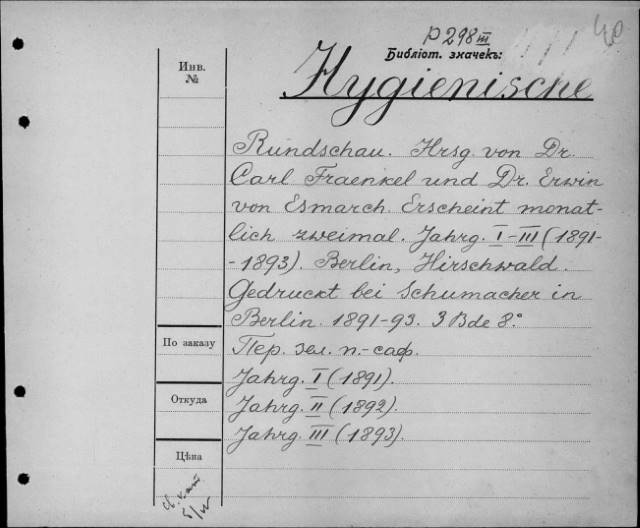 р 298 III
40
Библіот. значекъ:
Инв.
№
Hygienische
Rundschau. Hrsg. von Dr.
Carl Fraenkel und Dr. Erwin
von Esmarch. Erscheint monat-
lich zweimal. Jahrg. I-III (1891-
-1893). Berlin, Hirschwald.
Gedruckt bei Schumacher in
Berlin. 1891-93. 3 Bde 8.°
По заказу
Пер. зел. п.-саф.
Jahrg. I (1891).
Откуда
Jahrg. II (1892).
Jahrg. III (1893).
Цѣна